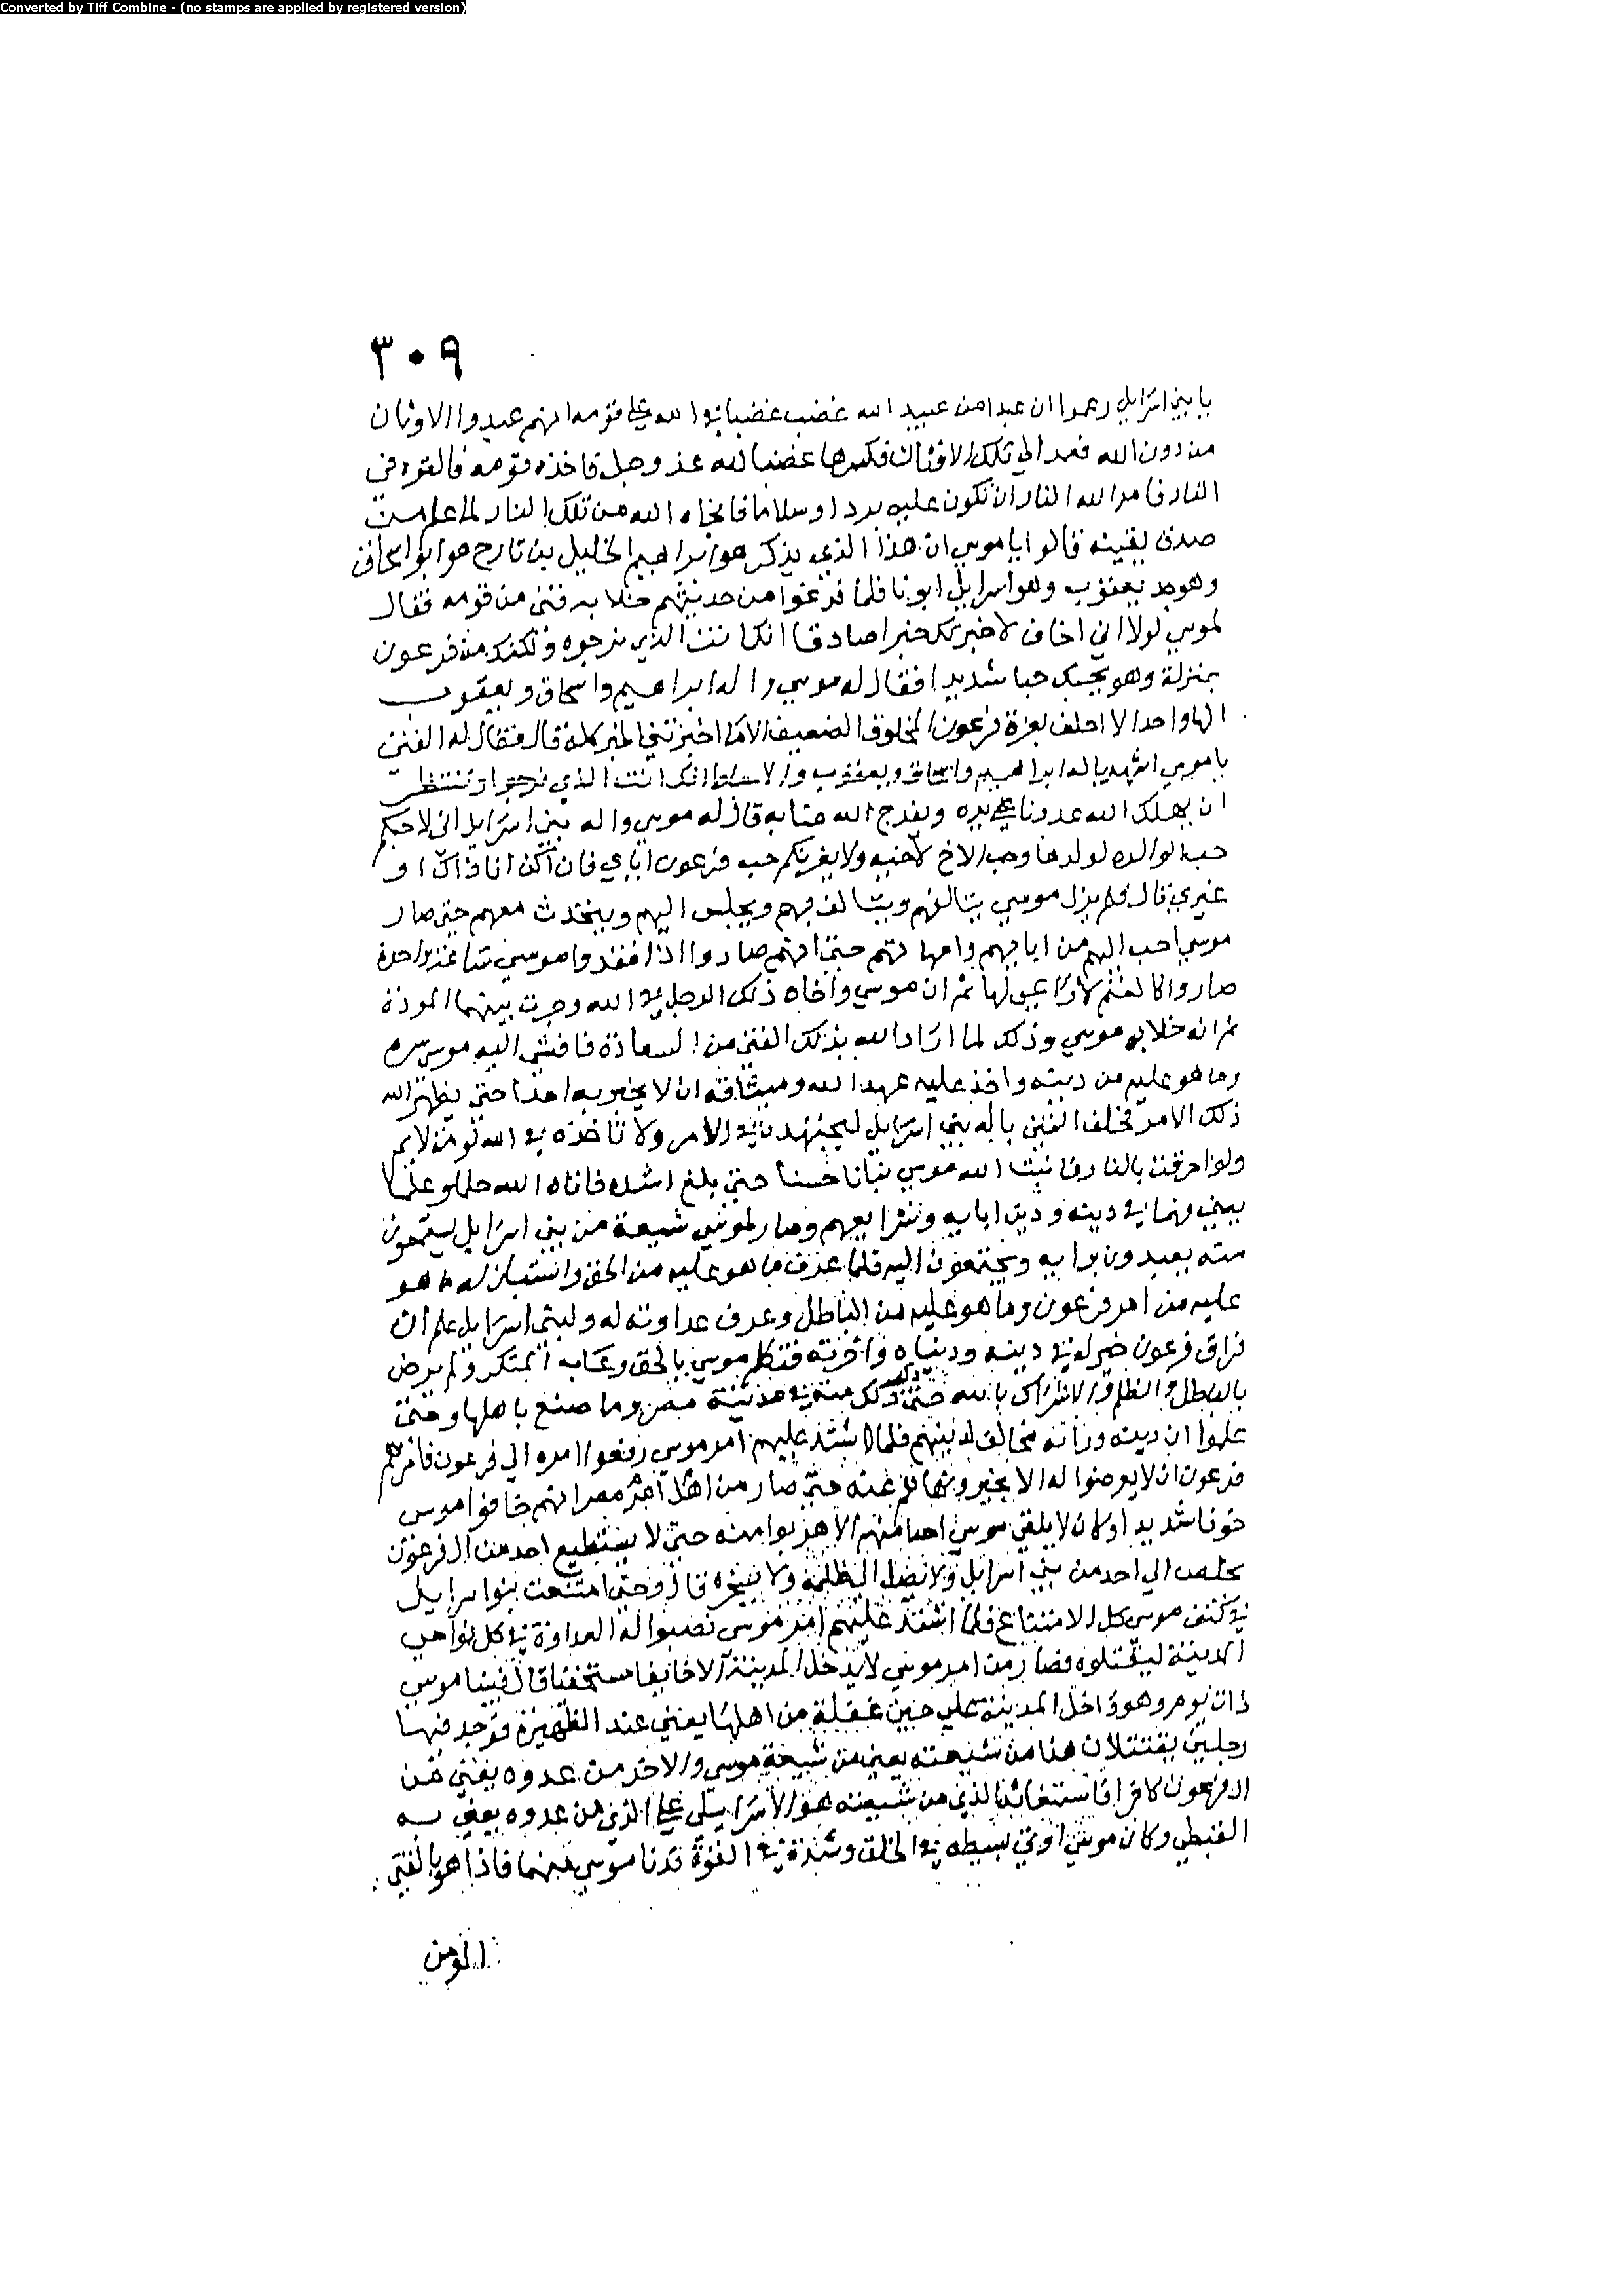 Converted by Tiff Combine - (no stamps are applied by registered version)
٣٠٩
يا بني اسرايل زعموا ان عبدا من عبيد الله غضب غضبا في الله على قومه انهم عبدوا الاوثان
من دون الله فعمد الي تلك الاوثان فكسرها غضبا لله عز وجل فاخذه قومه فالقوه في
النار فامر الله النار ان تكون عليه بردا وسلاما فانجاه الله من تلك النار لما علم من
صدق يقينه قالوا يا موسي ان هذا الذي يذكر هو ابراهيم الخليل بن تارح هو ابو اسحاق
وهو جد يعقوب وهو اسرايل ابونا فلما فرغوا من حديثهم خلا به فتي من قومه فقال
لموسي لولا اني اخاف لاخبرتك خبرا صادقا انك انت الذي نرجوه ولكنك من فرعون
بمنزلة وهو يحبك حبا شديدا فقال له موسي واله ابراهيم واسحاق ويعقوب
الها واحدا لا احلف بعزة فرعون المخلوق الضعيف الا ما اخبرتني الخبر كله قال فقال له الفتي
يا موسي اشهد باله ابراهيم واسحاق ويعقوب والاسباط انك انت الذي نرجوا وننتظر
ان يهلك الله عدونا علي يده ويفرج الله عنا به قال له موسي واله بني اسرايل اني لاحبكم
حب الوالده لولدها وحب الاخ لاخيه ولا يغرنكم حب فرعون اياي فان اكن انا ذاك او
غيري قال فلم يزل موسي يتالفهم ويتالف بهم ويجلس اليهم ويتحدث معهم حتي صار
موسي احب اليهم من ابايهم وامهاتهم حتي انهم صاروا اذا فقدوا موسي ساعة واحدة
صاروا كالغنم لا راعي لها ثم ان موسي واخاه ذلك الرجل في الله وجرت بينهما المودة
ثم انه خلا به موسي وذلك لما اراد الله بذلك الفتي من السعادة فافشي اليه موسي سره
وما هو عليه من دينه واخذ عليه عهد الله وميثاقه ان لا يخبر به احدا حتي يظهر الله
ذلك الامر فحلف الفتي باله بني اسرايل ليجتهدن في الامر ولا تاخذه في الله لومة لايم
ولو احرقت بالنار فانبت الله موسي نباتا حسنا حتي بلغ اشده فاتاه الله حلما وعلما
يعني فهما في دينه ودين ابايه وشرايعهم وصار لموسي شيعة من بني اسرايل يستمعون
منه يعبدون برايه ويجتمعون اليه فلما عرف ما هو عليه من الحق واستبان له ما هو
عليه من امر فرعون وما هو عليه من الباطل وعرف عداوته له ولبني اسرايل علم ان
فراق فرعون خير له في دينه ودنياه واخرته فتكلم موسي بالحق وعابه المنكر ولم يرض
بالباطل والظلم والاشراك بالله حتي ذلك منه في مدينة مصر وما صنع باهلها وحتي
علموا ان دينه ورايه مخالف لدينهم فلما اشتد عليهم امر موسي رفعوا امره الي فرعون فامرهم
فرعون ان لا يعرضوا له الا بخير ونهاهم عنه حتي صار من اهل مصر انهم خافوا موسي
خوفا شديدا وكان لا يلقي موسي احدا منهم الا هربوا منه حتي لا يستطيع احد من ال فرعون
يخلص الي احد من بني اسرايل ولا بظلمة ولا بسخرة قال وحتي امتنعت بنوا اسرايل
في كنف موسي كل الامتناع فلما اشتد عليهم امر موسي نصبوا له العداوة في كل نواحي
المدينة ليقتلوه فصار من امر موسي لا يدخل المدينة الا خايفا مستخفيا قال فبينا موسي
ذات يوم وهو داخل المدينة علي حين غفلة من اهلها يعني عند الظهيرة فوجد فيها
رجلين يقتتلان هذا من شيعته يعني من شيعة موسي والاخر من عدوه يعني من
ال فرعون كافرا فاستغاثه الذي من شيعته هو الاسرايلي علي الذي من عدوه يعني به
القبطي وكان موسي اوتي بسطه في الخلق وشدة في القوة فدنا موسي منهما فاذا هو بالفتي
المومن